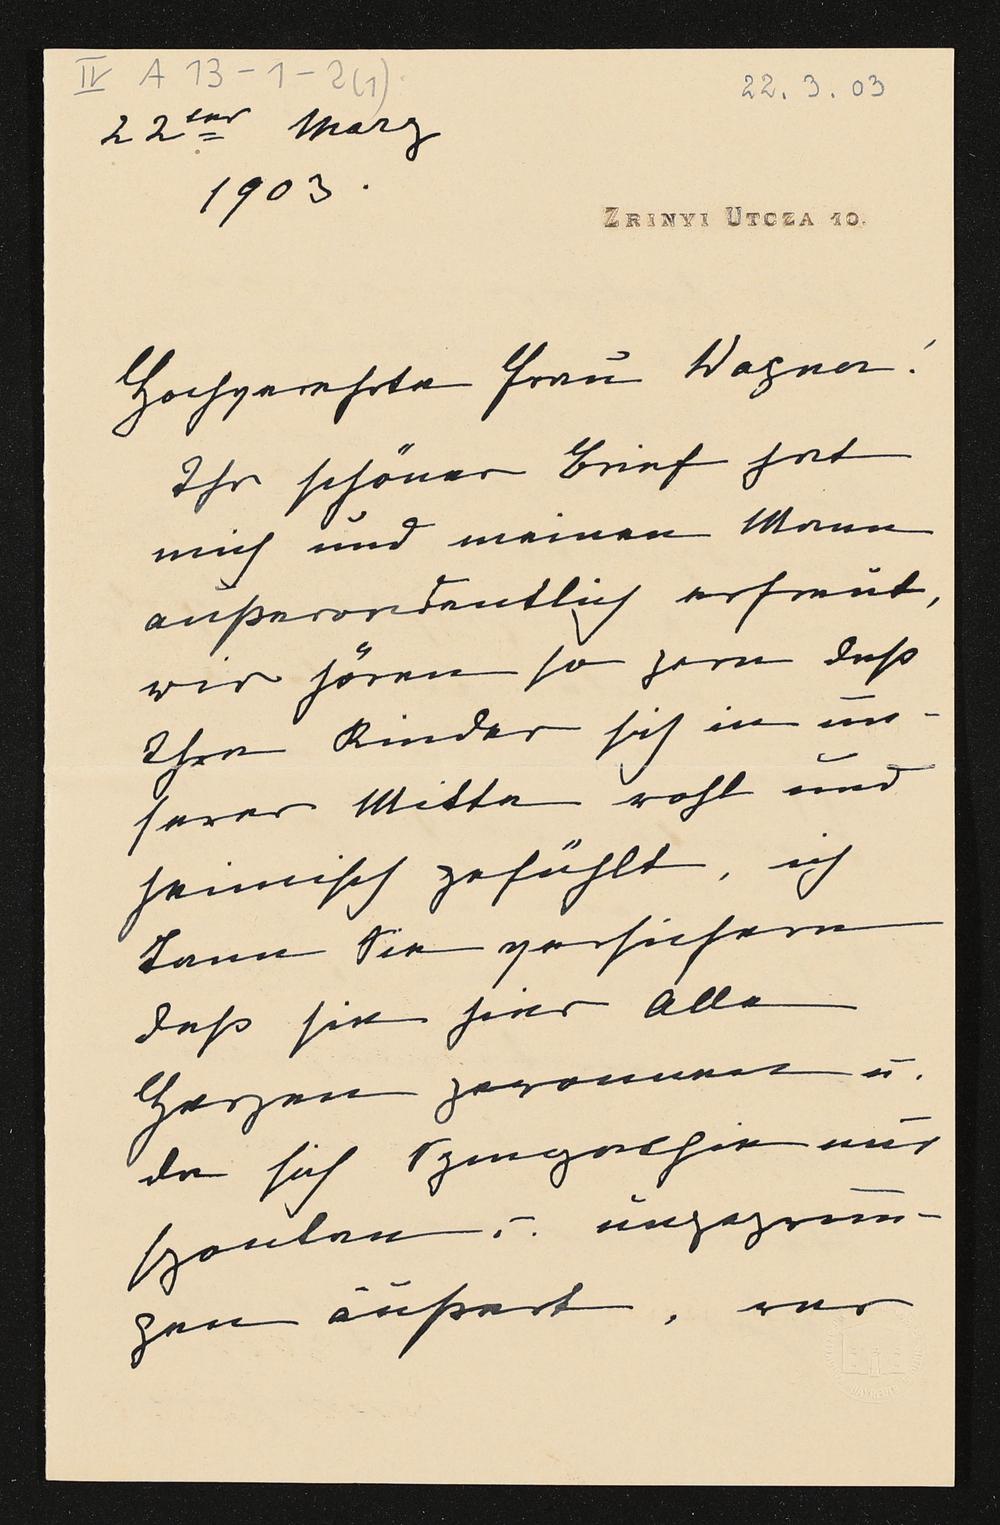 IV A 13-1-2(1)
22. 3. 03
22ter März
1903.
ZRINYI UTCZA 10.
Hochverehrte Frau Wagner!
Ihr schöner Brief hat
mich und meinen Mann
außerordentlich erfreut,
wir hören so gern daß
Ihre Kinder sich in un-
serer Mitte wohl und
heimisch gefühlt, ich
kann Sie versichern
daß sie hier Alle
Herzen gewonnen u.
da sich Sympathie nur
spontan u. ungezwun-
gen äußert, war